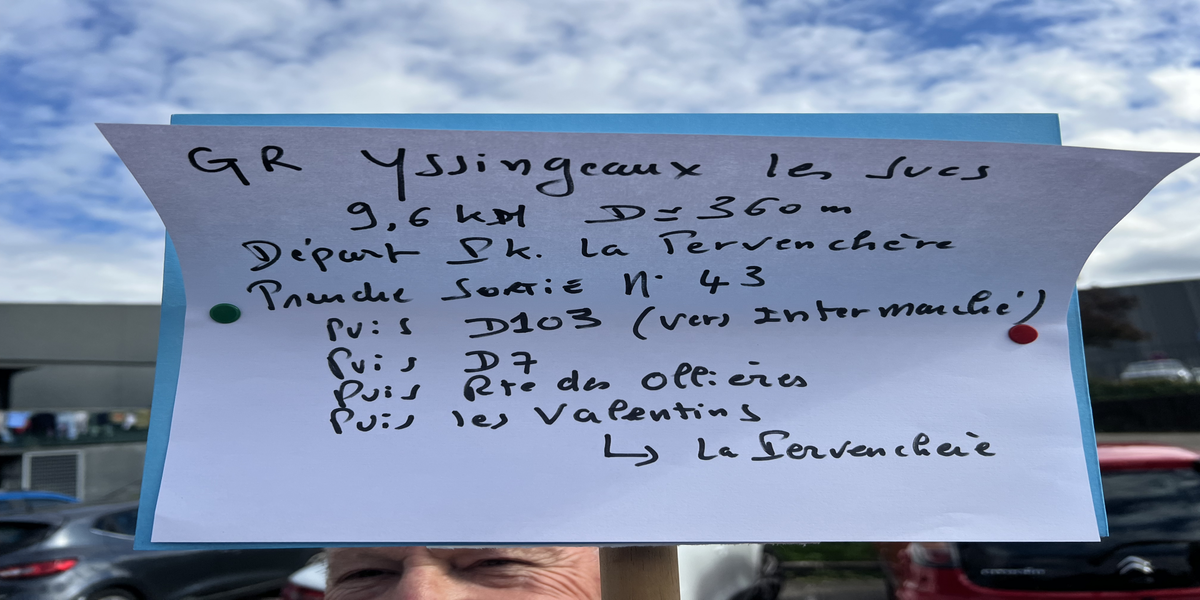 GR Yssingeaux les Sucs
9,6 KM D=360m
Départ Pk. La Pervenchère
Prendre Sortie N° 43
Puis D103 (vers Intermarché)
Puis D7
Puis Rte des Ollières
Puis les Valentins
↳ La Pervenchère